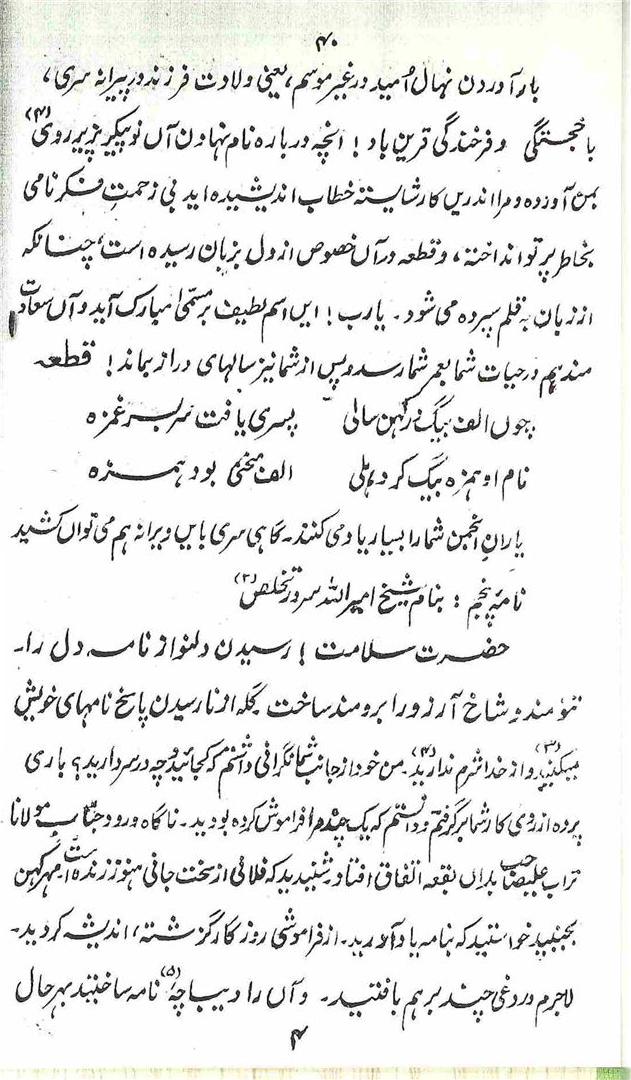 ۴۰
بار آوردن نہال اُمید در غیر موسم، یعنی ولادت فرزند در پیرانہ سری،
با خجستگی و فرخندگی قرین باد! انچہ دربارہ نام نہادن آں نو پیکر پزیر روی (۴)
بمن آوردہ و مرا اندریں کار شایستۂ خطاب اندیشیدہ اید بی زحمت فکر نامی
بخاطر پرتو انداختہ، و قطعہ در آں خصوص از دل بزبان رسیدہ است، چنانکہ
از زبان بہ قلم سپردہ می شود۔ یارب! ایں اسم لطیف بر مسمّیٰ مبارک آید و آں سعادت
مند ہم در حیات شما بعمر شما رسد و پس از شما نیز سالہای دراز بماند! قطعہ
چوں الف بیگ در کہن سالی پسری یافت سر بسر غمزہ
نام او ہمزہ بیگ کرد بلی الف منحنی بود ہمزہ
یاران انجمن شما را بسیار یاد می کنند۔ گاہی سری بایں ویرانہ ہم می تواں کشید
نامہ پنجم : بنام شیخ امیر اللہ سرور تخلص (۲)
حضرت سلامت! رسیدن دلنواز نامہ دل را۔
تنومند و شاخ آرزو را برومند ساخت گلہ از نا رسیدن پاسخ نامہای خویش
میکنید (۳) و از خدا شرم ندارید (۴)۔ من خود از جانب شما نگرانی داشتم کہ کجائید و چہ در سر دارید؟ باری
پردہ از روی کار شما بر گرفتم و دانستم کہ یک چند مرا فراموش کردہ بودید۔ ناگاہ ورود جناب مولانا
تراب علیصاحب بداں بقعہ اتفاق افتاد۔ شنیدید کہ فلانی از سخت جانی ہنوز زندہ است مہر کہن
بجنبید خواستید کہ بنامہ یاد آورید۔ از فراموشی روزگار گزشتہ، اندیشہ کردید۔
لاجرم دروغی چند برہم بافتید۔ و آں را دیباچہ (۵) نامہ ساختید بہر حال
۴